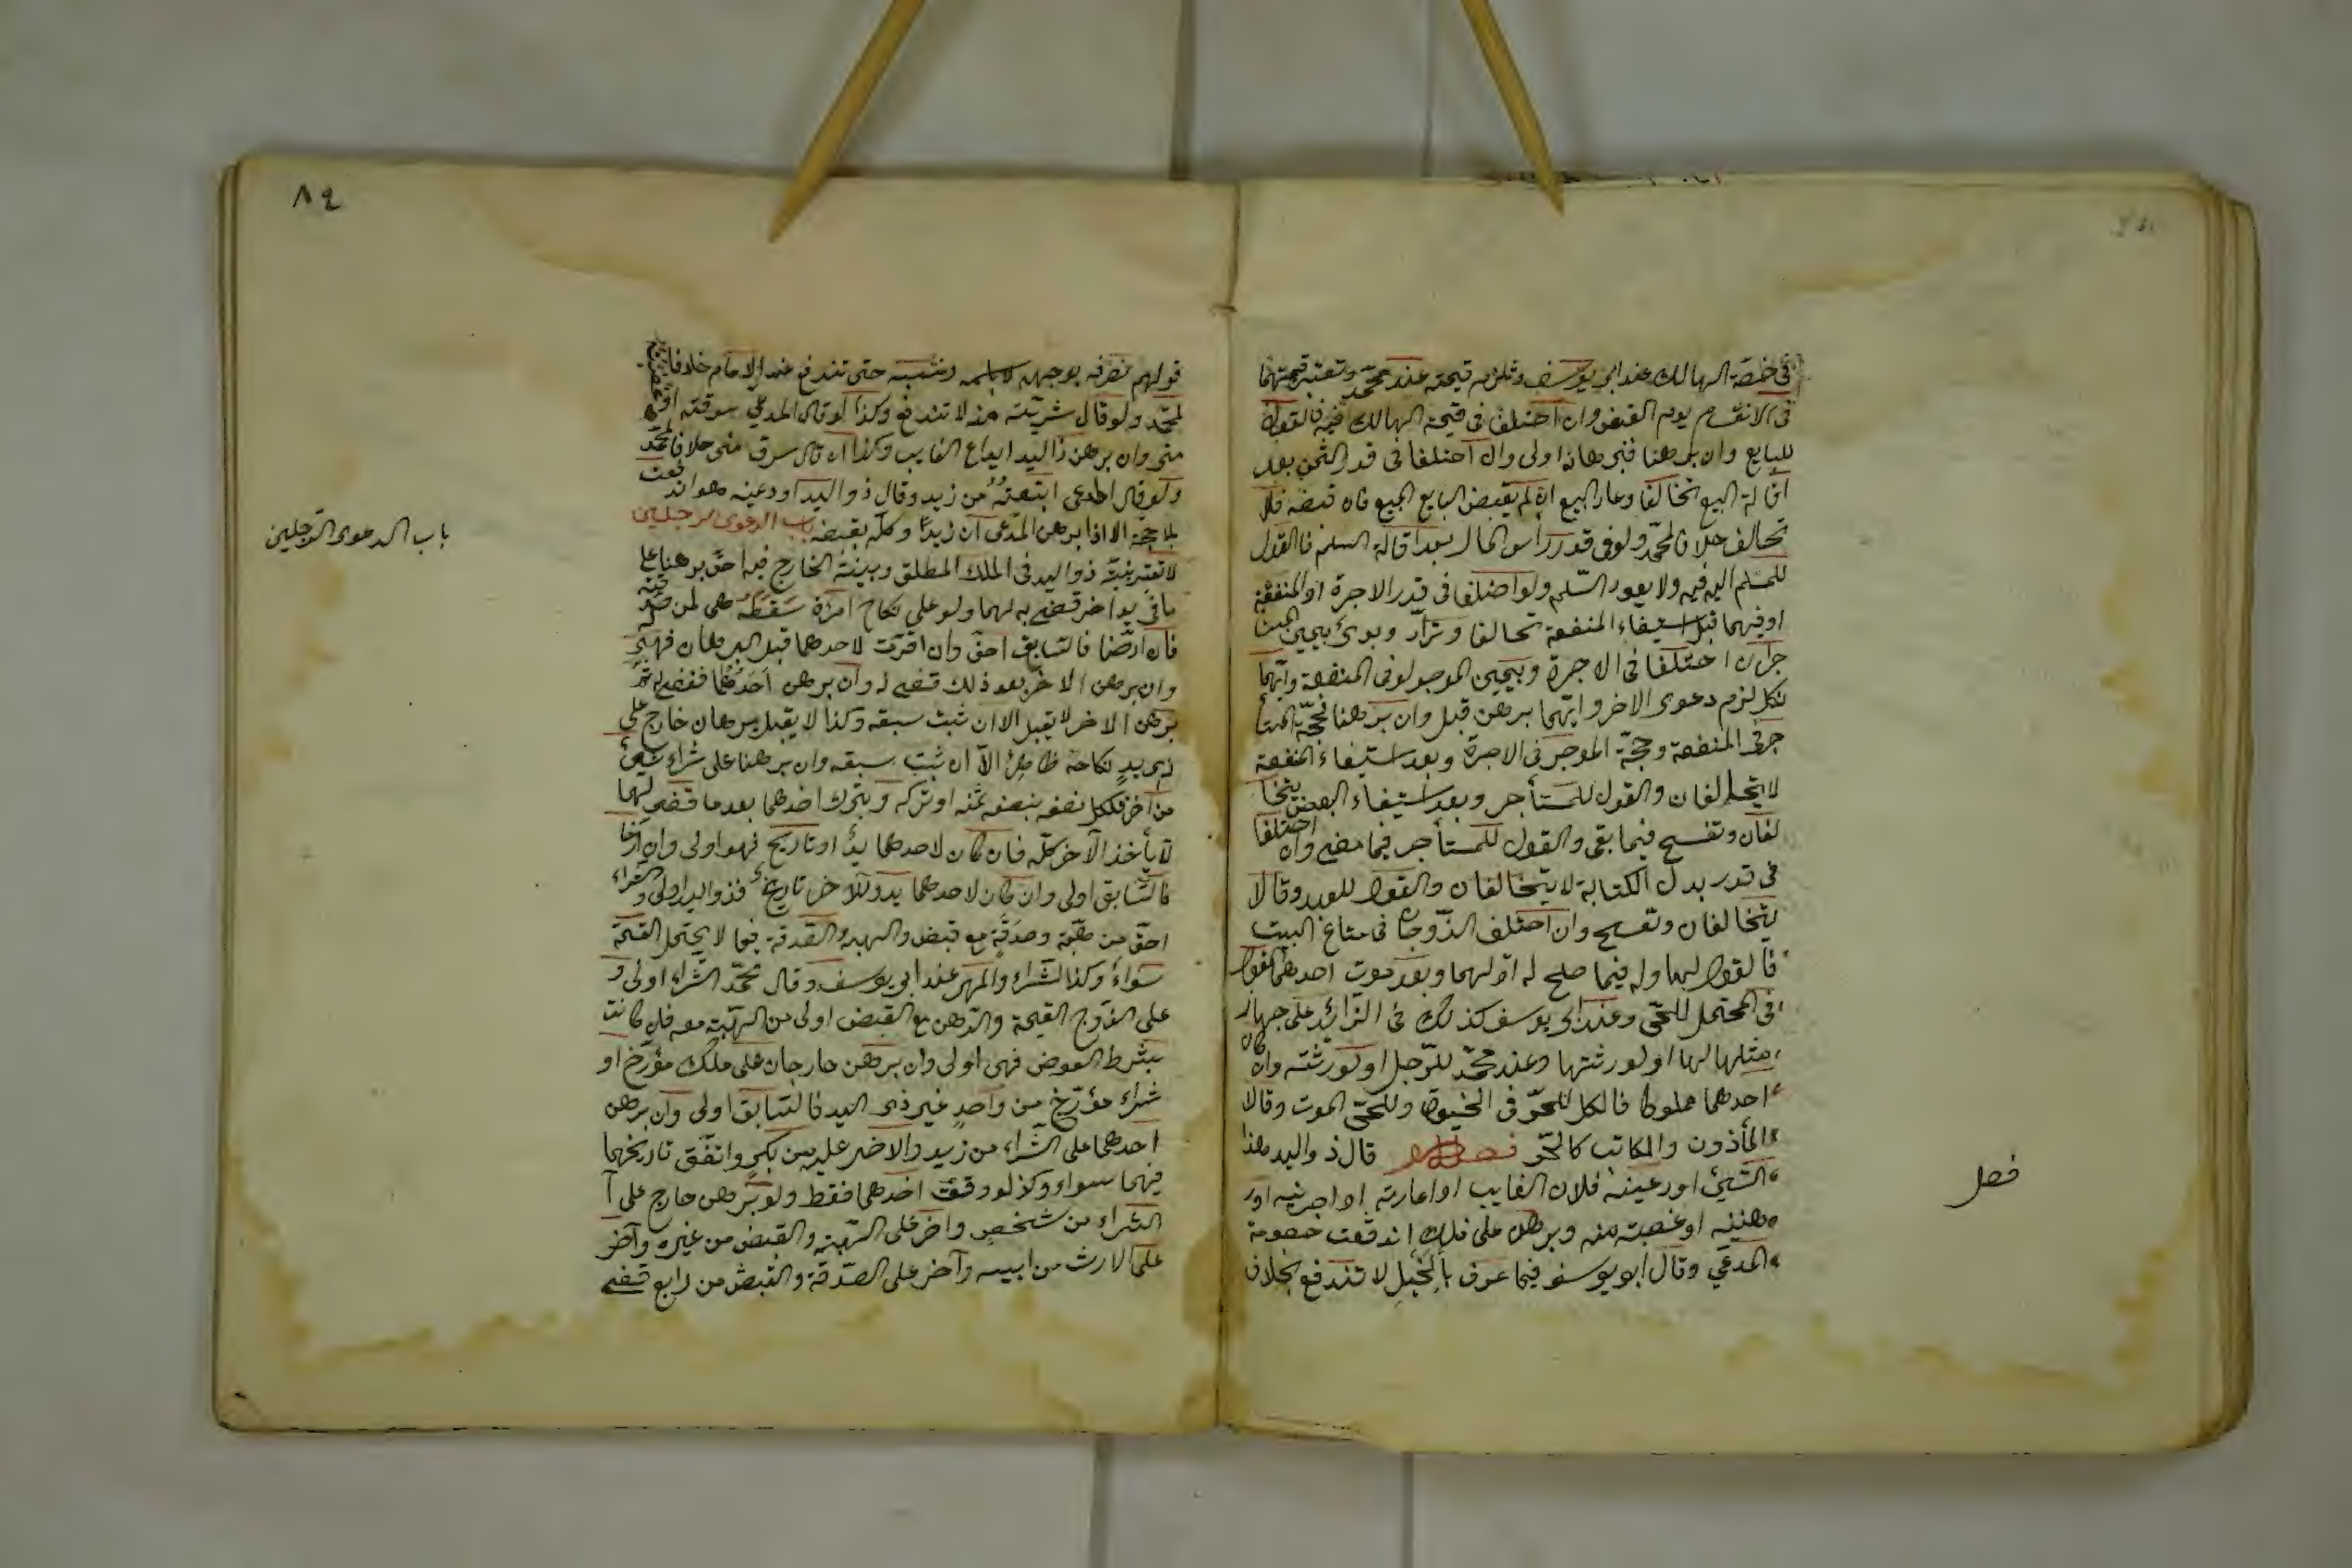 في حصّة الهالك عند ابي يوسف وتلزم قيمته عند محمّد وتعتبر قيمتهما
في الانقسام يوم القبض وان اختلفا في قيمة الهالك فيه فالقول
للبايع وان برهنا فبرهانه اولى وان اختلفا في قدر الثمن بعد
اقالة البيع تحالفا وعاد البيع ان لم يقبض البايع المبيع فان قبضه فلا
تحالف خلافا لمحمّد ولو في قدر راس المال بعد اقالة السلم فالقول
للمسلم اليه فيه ولا يعود السّلم ولو اختلفا في قدر الاجرة او المنفعة
او فيهما قبل استيفاء المنفعة تحالفا وترادّ وبدئ بيمين المستا
جر ان اختلفا في الاجرة وبيمين الموجر لو في المنفعة وايّهما
نكل لزم دعوى الاخر وايّهما برهن قبل وان برهنا فحجّة المستا
جر في المنفعة وحجّة الموجر في الاجرة وبعد استيفاء المنفعة
لا يتحالفان والقول للمستأجر وبعد استيفاء البعض يتحا
لفان وتفسخ فيما بقي والقول للمستأجر فيما مضى وان اختلفا
في قدر بدل الكتابة لا يتحالفان والقول للعبد وقالا
يتحالفان وتفسخ وان اختلف الزّوجان في متاع البيت
فالقول لها وله فيما صلح له او لهما وبعد موت احدهما فالقول
في المحتمل للحيّ وعند ابي يوسف كذلك في الزّائد على جهاز
مثلها لها او لورثتها وعند محمّد للرّجل او لورثته وان كان
احدهما مملوكا فالكل للحرّ في الحيوة وللحيّ الموت وقالا
المأذون والمكاتب كالحرّ فصل قال ذو اليد هذا
الشيئ اودعينه فلان الغايب او اعارنيه او اجرنيه اور
هننيه او غصبته منه وبرهن على ذلك اندفعت خصومة
المدعي وقال ابو يوسف فيما عرف بالحيل لا تندفع بخلاف
فصل
٨٩
قولهم نعرفه بوجهه لا باسمه ونسبه حتى تندفع عند الامام خلافا
لمحمّد ولو قال شريته منه لا تندفع وكذا لو قال المدعي سرقته او
منّي وان برهن ذا اليد ايداع الغايب وكذا ان قال سرق منّي خلافا لمحمّد
ولو قال المدعي ابتعته من زيد وقال ذو اليد اودعنيه هو اندفعت
بلا حجّة الا اذا برهن المدّعي انّ زيدًا وكله بقبضه باب الدعوى الرجلين
لا تعتبر بيّنة ذو اليد في الملك المطلق وبينة الخارج فيه احقّ برهنا على
ما في يد اخر قضي به لهما ولو على نكاح امرأة سقطا وهي لمن صدّقته
فان ارّخا فالسّابق احق وان اقرّت لاحدهما قبل البرهان فهي له
وان برهن الاخر بعد ذلك قضي له وان برهن احدهما فقضي له ثمّ
برهن الاخر لا يقبل الا ان ثبت سبقه وكذا لا يقبل برهان خارج على
ذي يدٍ نكاحه ظاهرٌ الاّ ان ثبت سبقه وان برهنا على شراء شيئ
من اخر فلكل نصفه بنصف ثمنه او تركه وبترك احدهما بعد ما قضى لهما
لا يأخذ الآخر كلّه فان كان لاحدهما يدٌ او تاريخ فهو اولى وان ارّخا
فالسّابق اولى وان كان لاحدهما يد وللآخر تاريخ فذو اليد اولى والشراء
احقّ من هبة وصدقةٍ مع قبض والهبة والصّدقة فيما لا يحتمل القسمة
سواءٌ وكذا الشّراء والمهر عند ابي يوسف وقال محمّد الشّراء اولى و
على الزوج القيمة والرّهن مع القبض اولى من الهبة معه فان كانت
بشرط العوض فهي اولى وان برهن خارجان على ملك مؤرّخ او
شراء مؤرّخ من واحدٍ غير ذي اليد فالسّابق اولى وان برهن
احدهما على الشّراء من زيد والاخر عليه من بكرٍ واتفق تاريخهما
فهما سواء وكذا لو وقّت احدهما فقط ولو برهن خارج على ا
لشراء من شخصٍ واخر على الهبة والقبض من غيره وآخر
على الارث من ابيه وآخر على الصّدقة والقبض من رابع قضي
باب الدعوى الرّجلين